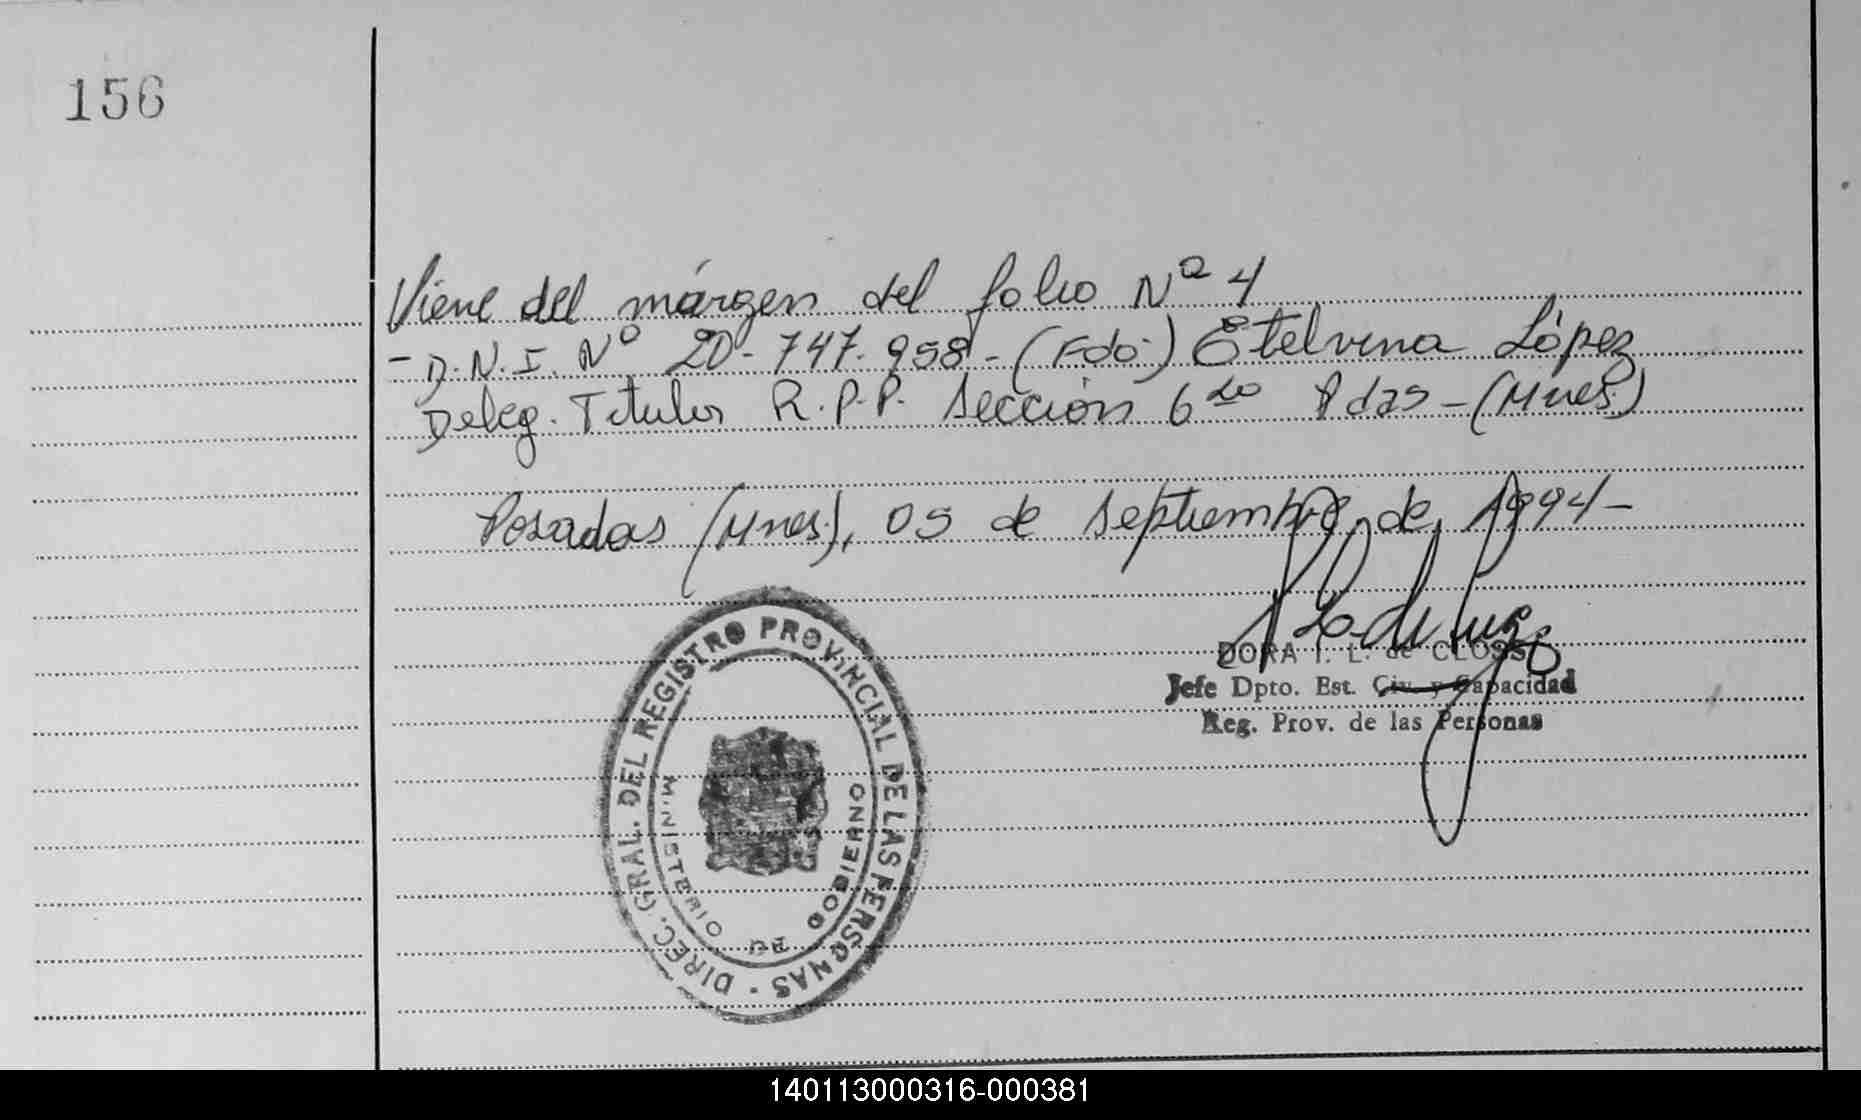 156
Viene del márgen del folio Nº 4
- D.N.I. Nº 20-747-958 - (Fdo:) Etelvina López
Deleg. Titular R.P.P. Sección 6 Pdas - (Mnes)
Posadas (Mnes), 05 de septiembre de 1994 -
DORA I. L. de CLOSS
Jefe Dpto. Est. Civ. y Capacidad
Reg. Prov. de las Personas
DIREC. GRAL. DEL REGISTRO PROVINCIAL DE LAS PERSONAS -
MINISTERIO DE GOBIERNO
140113000316-000381